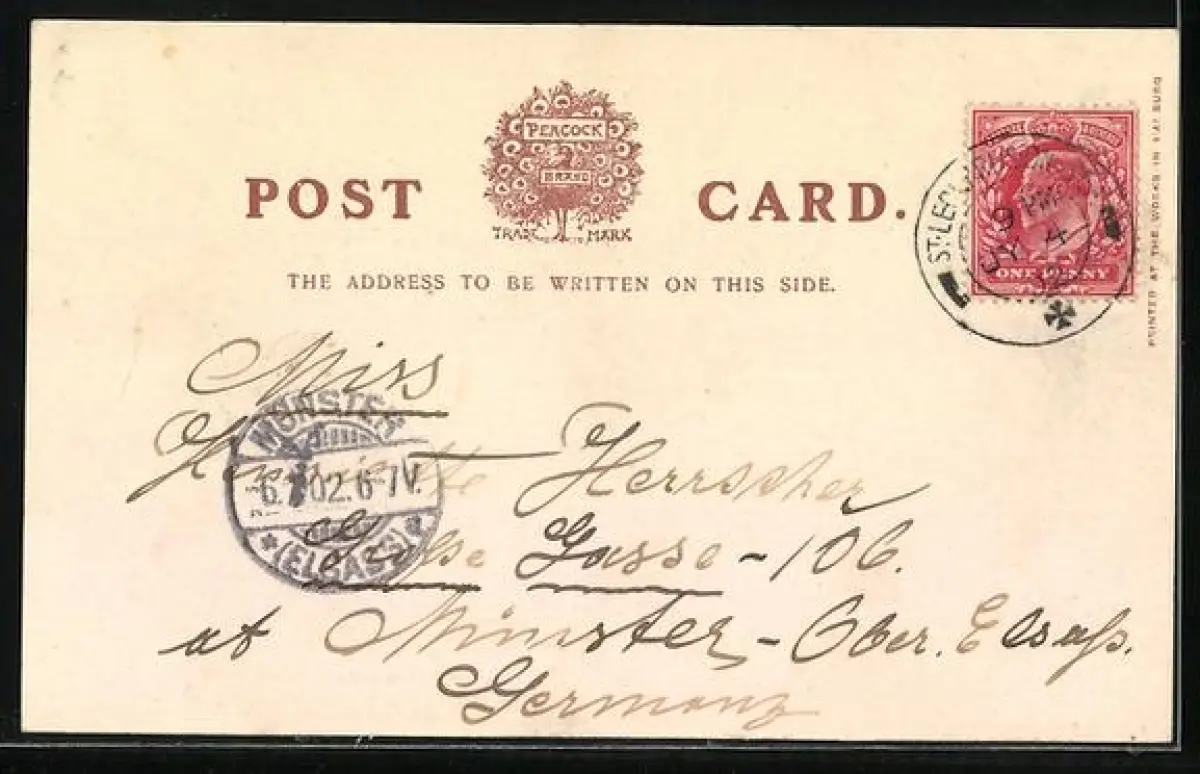 PEACOCK
BRAND
TRADE MARK
POST CARD.
THE ADDRESS TO BE WRITTEN ON THIS SIDE.
ONE PENNY
9 PM
JY 4
PRINTED AT THE WORKS IN
Miss
Henriette Herrscher
Große Gasse - 106.
at Münster - Ober. Elsaß.
Germany
MÜNSTER
6. 02. 6-7V.
* (ELSASS) *